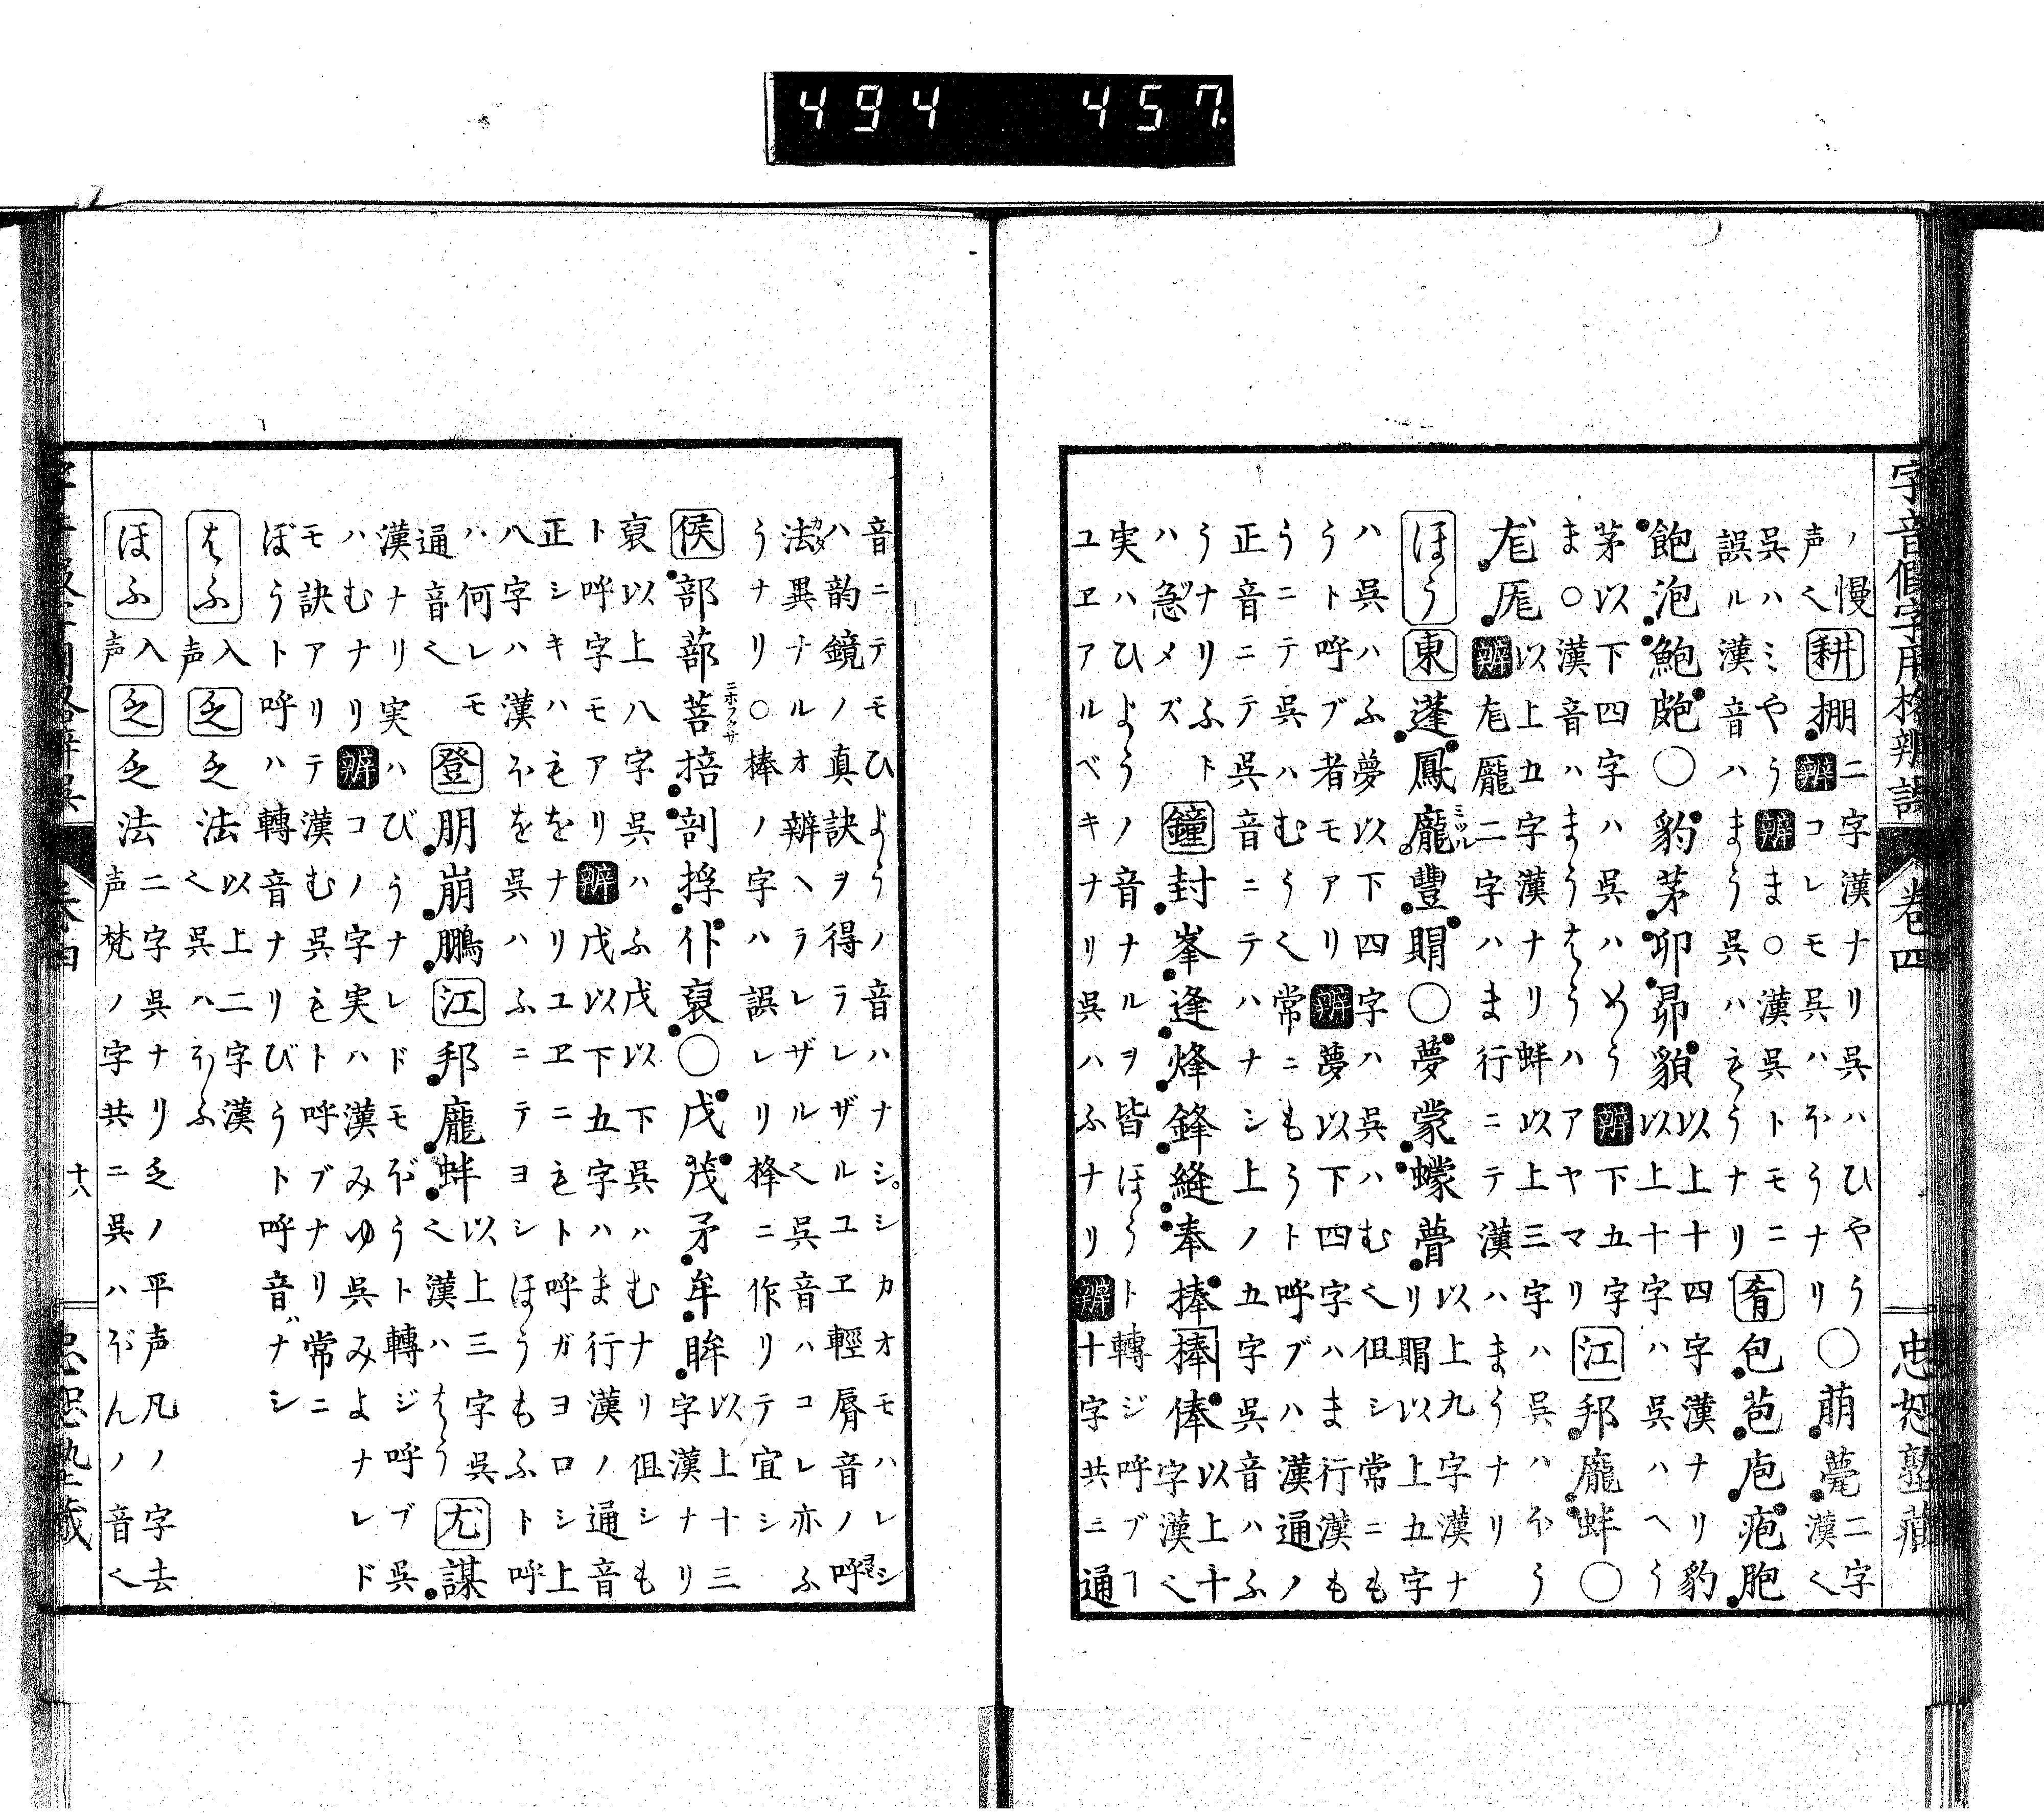 494 457
字音假字用格辨誤 卷四 忠恕塾蔵
ノ慢 二字漢ナリ呉ハひやうナリ〇萠甍二字
声く 耕 掤 辨コレモ呉ハほうナリ 漢く
呉ハミやう辨ま〇漢呉トモニ 肴 包苞庖疱胞
誤ル漢音ハまう呉ハもうナリ
飽泡鮑皰〇豹茅卯昴貌以上十四字漢ナリ豹
茅以下四字ハ呉ハめう辨下五字 以上十字ハ呉ハへう
ま〇漢音ハまうはうハアヤマリ 江 邦龐蚌〇
尨厖 以上五字漢ナリ蚌以上三字ハ呉ハほう
辨尨龐二字ハま行ニテ漢ハまうナリ
ほう 東 蓬鳳龐豐賵〇夢蒙蠓瞢以上九字漢ナリ賵以上五字
ハ呉ハふ夢以下四字ハ呉ハむく但シ常ニも
うト呼ブ者モアリ辨夢以下四字ハま行漢も
うニテ呉ハむうく常ニもうト呼ブハ漢通ノ
正音ニテ呉音ニテハナシ上ノ五字呉音ハふ
うナリふト 鐘 封峯逢烽鋒縫奉捧棒俸以上十字漢く
ハ急メズ
実ハひようノ音ナルヲ皆ほうト轉ジ呼ブヿ
ユヱアルベキナリ呉ハふナリ辨十字共ニ通
音ニテモひようノ音ハナシ。シカオモハレシ
ハ韵鏡ノ真訣ヲ得ラレザルユヱ輕脣音ノ呼
法異ナルオ辨ヘラレザルく呉音ハコレ亦ふ
うナリ〇棒ノ字ハ誤レリ桻ニ作リテ宜シ
侯 部蔀菩掊剖捊仆裒〇戊茂矛牟眸以上十三字漢ナリ
裒以上八字呉ハふ戊以下呉ハむナリ但シも
ト呼字モアリ辨戊以下五字ハま行漢ノ通音
正シキハもをナリユヱニもト呼ガヨロシ上
八字ハ漢ほを呉ハふニテヨシほうもふト呼
ハ何レモ 登 朋崩鵬 江 邦龐蚌以上三字呉 尤 謀
通音く く漢ハはう
漢ナリ実ハびうナレドモぼうト轉ジ呼ブ呉
ハむナリ辨コノ字実ハ漢みゆ呉みよナレド
モ訣アリテ漢む呉もト呼ブナリ常ニ
ぼうト呼ハ轉音ナリびうト呼音ハナシ
はふ 入声 乏 乏法以上二字漢く呉ハほふ
ほふ 入声 乏 乏法二字呉ナリ乏ノ平声凡ノ字去
声梵ノ字共ニ呉ハぼんノ音く
十八